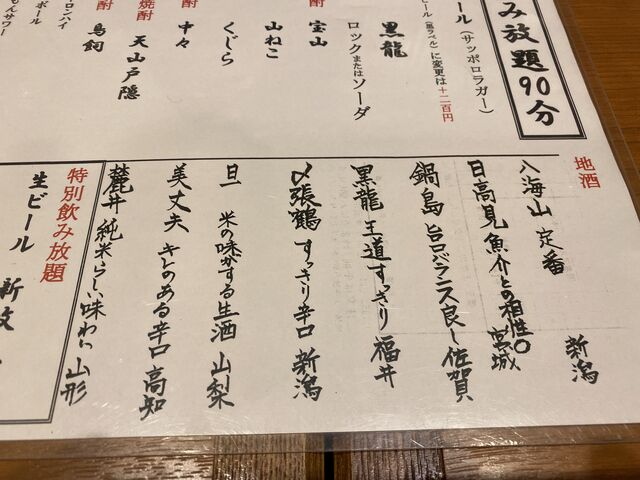 み放題90分
ール（サッポロラガー）
ビール（黒ラベル）に変更は＋二百円
黒龍
ロックまたはソーダ
酎
宝山
山ねこ
くじら
酎
中々
焼酎
天山戸隠
酎
鳥飼
トロンハイ
ボール
もんサワー
地酒
八海山 定番 新潟
日高見 魚介との相性〇 宮城
鍋島 旨口バランス良し 佐賀
黒龍 王道すっきり 福井
〆張鶴 すっきり辛口 新潟
旦 米の味がする生酒 山梨
美丈夫 きらのある辛口 高知
麓井 純米らしい味わい 山形
特別飲み放題
生ビール